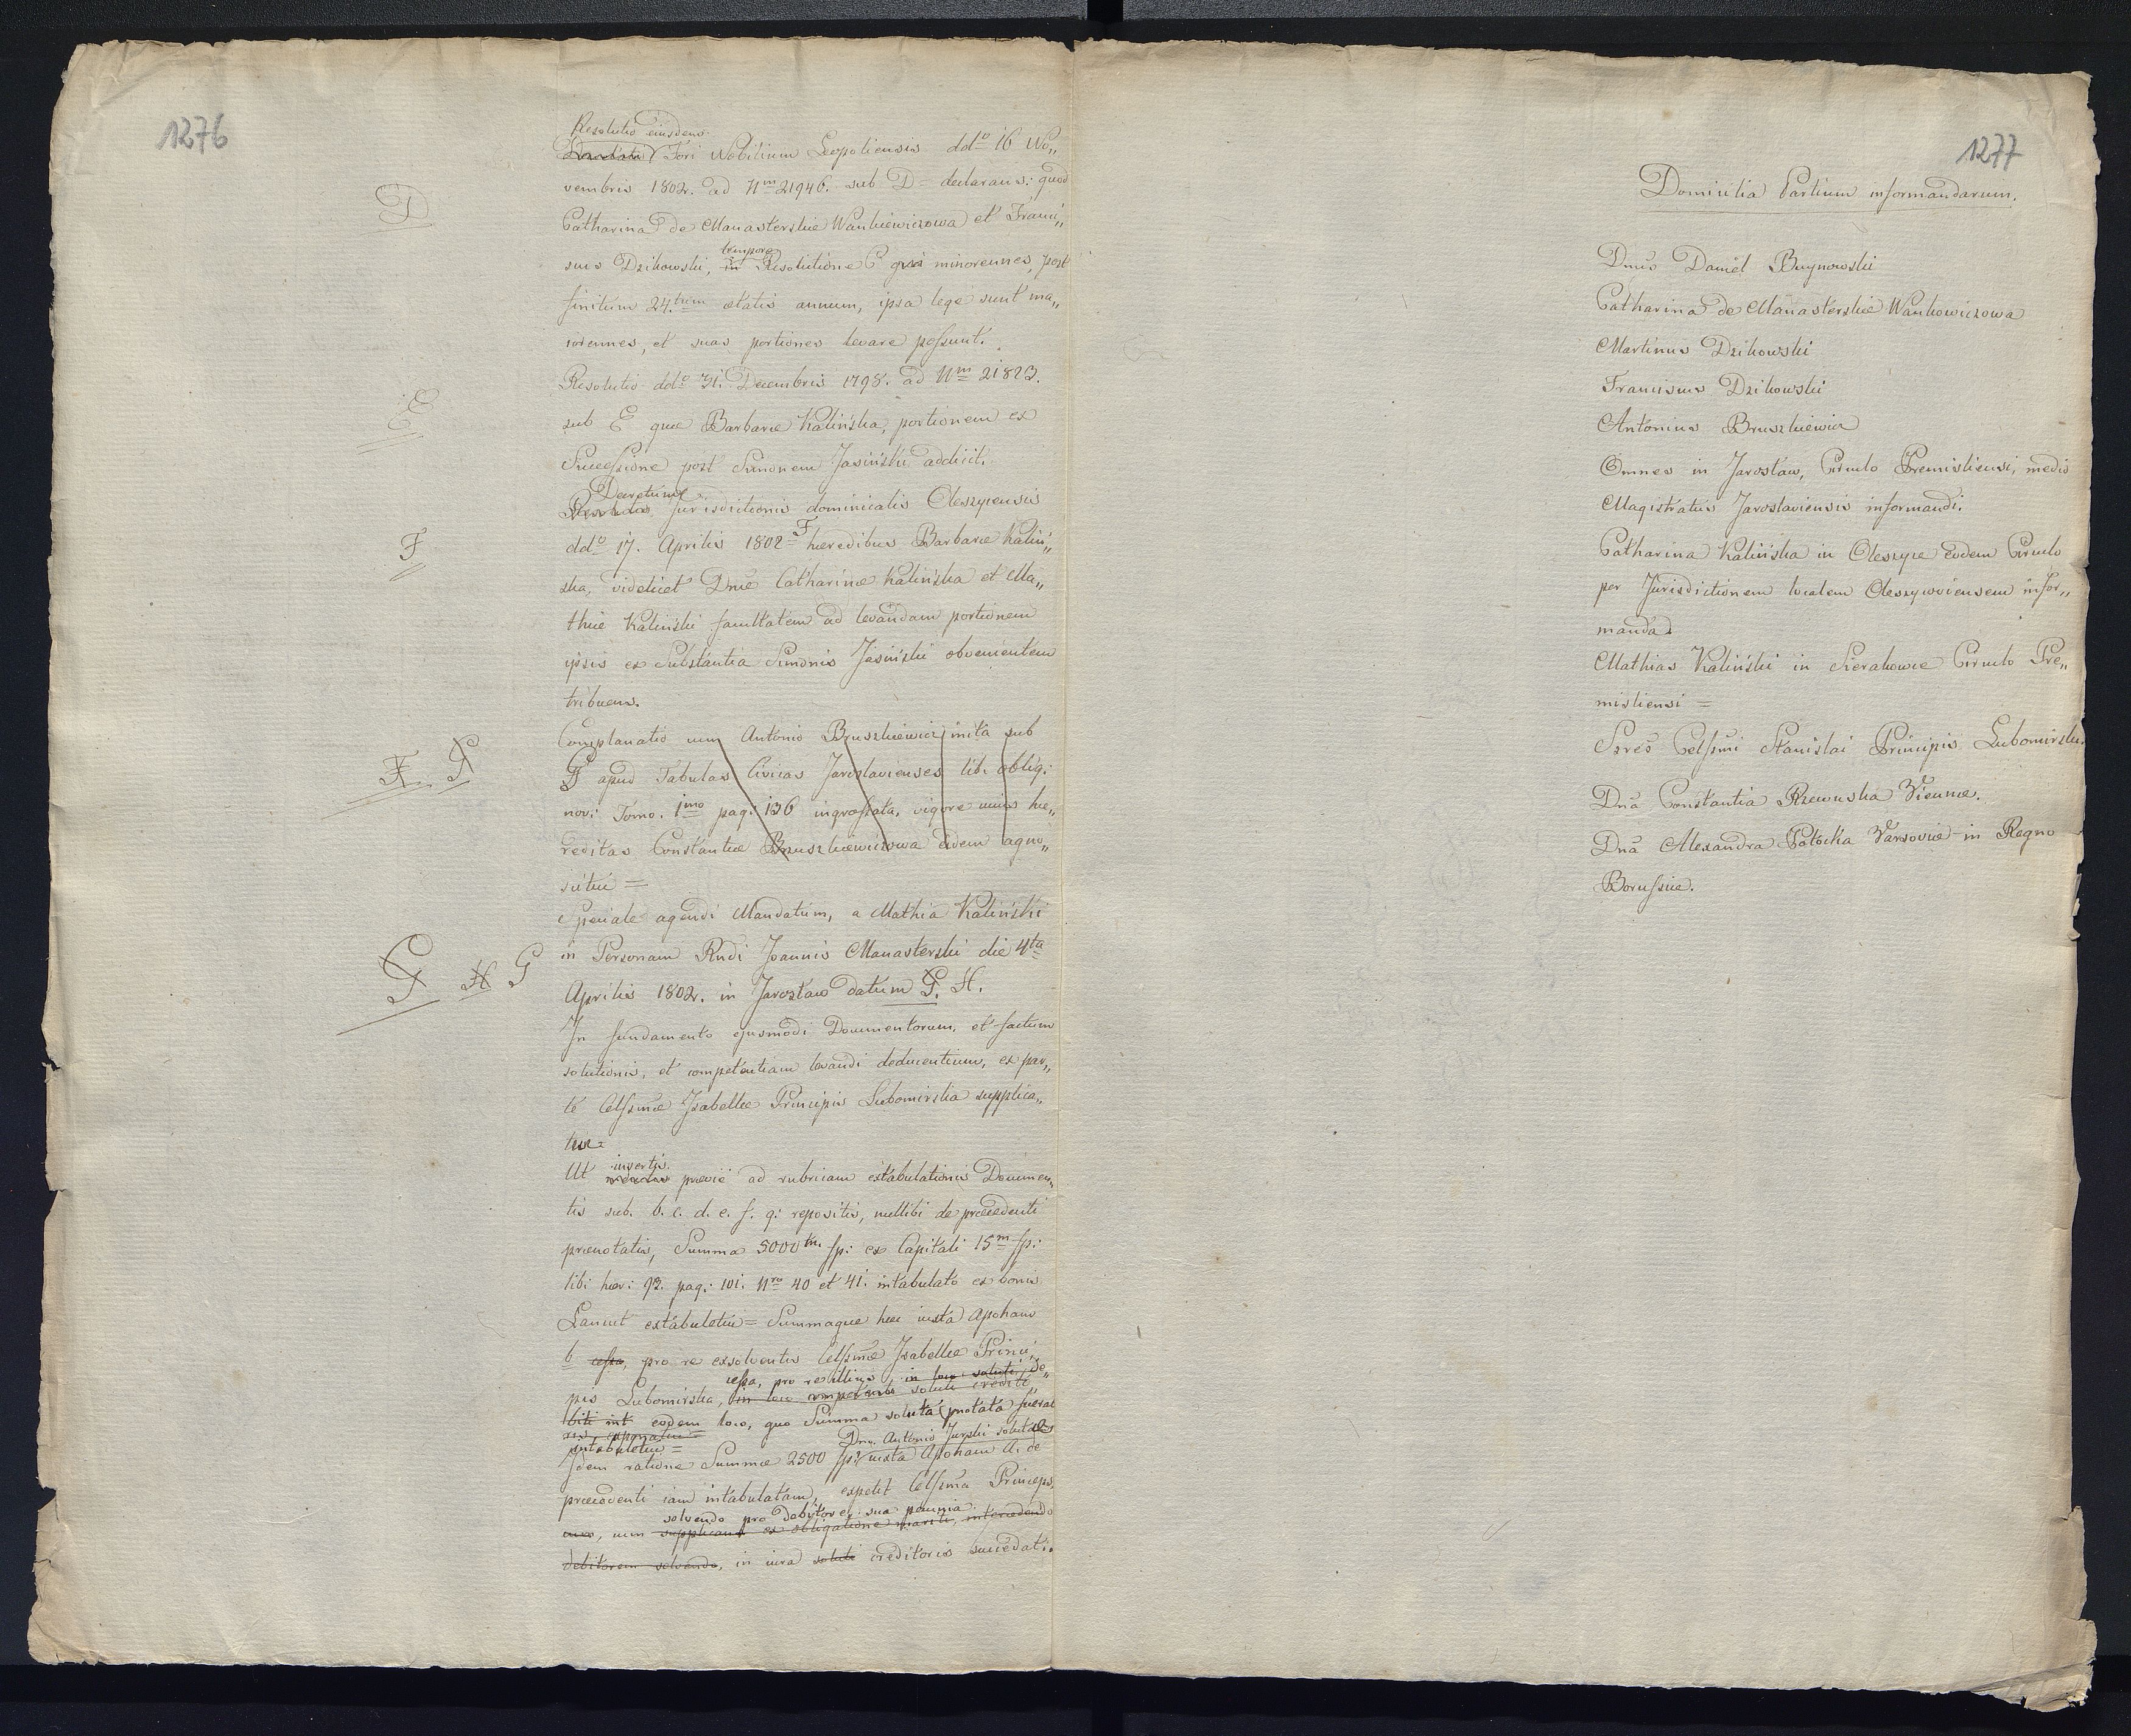 1276
Resolutio eiusdem
Fori Nobilium Leopoliensis ddo 16 No„
D
vembris 1802. ad Nm 21946. sub D = declarans: quod
Catharina de Manasterskie Wankiewiczowa et Franci„
tempore
scus Dzikowski, in Resolutione C qua minorennes, post
finitum 24tum ætatis annum, ipsa lege sunt ma„
iorennes, et suas portiones levare possunt.
Resolutio ddo 31. Decembris 1798. ad Nm 21823.
E
sub E quæ Barbaræ Kalińska, portionem ex
Successione post Simonem Jasiński addicit.
Decretum
Jurisdictionis dominicalis Oleszycensis
F
ddo 17. Aprilis 1802 = F hæredibus Barbaræ Kaliń„
ska, videlicet Dnæ Catharinæ Kalińska et Ma„
thiæ Kaliński facultatem ad levandam portionem
ipsis ex Substantia Simonis Jasiński obvenientem
tribuens.
Complanatio cum Antonio Bruszkiewicz inita sub
F G
G apud Tabulas Civicas Jaroslavienses lib: oblig:
nov: Tomo. 1mo pag: 136 ingrossata, vigore cuius hæ„
reditas Constantiæ Bruszkiewiczowa eidem agno„
scitur =
Speciale agendi Mandatum, a Mathia Kaliński
G H G
in Personam Rndi Joannis Manasterski die 4ta
Aprilis 1802. in Jarosław datum G. H.
In fundamento ejusmodi Documentorum, et factum
solutionis, et competentiam levandi deducentium, ex par„
te Celssmæ Isabellæ Principis Lubomirska supplica„
tur =
insertis
Ut prævie ad rubricam extabulationis Documen„
tis sub. b. c. d. e. f. g: repositis, nullibi de præcedenti
prænotatis, Summa 5000 fp: ex Capitali 15m fp:
libi hær: 93. pag: 101. Nro 40 et 41. intabulato ex bonis
Lancut extabuletur = Summaque hæc iuxta Apocham
b cessa, pro re exsolventis Celssmæ Isabellæ Princi„
cessa, pro re illius, in loco soluti, de„
pis Lubomirska, in loco competenti soluti crediti
biti int eodem loco, quo Summa soluta pnotata fuerat
intabuletur =
Dno Antonio Jurski soluta
Idem ratione Summæ 2500 fp: iuxta Apocham A. de
præcedenti iam intabulatam, expetit Celssma Princeps
solvendo pro debitore, sua pecunia
cum supplicans ex obligatione mariti, intercedendo
debitorem solvendo, in iura soluti creditoris succedat.
1277
Domicilia Partium informandarum.
Dnus Daniel Buynowski
Catharina de Manasterskie Wankowiczowa
Martinus Dzikowski
Franciscus Dzikowski
Antonius Bruszkiewicz
Omnes in Jarosław, Circulo Premisliensi, medio
Magistratus Jaroslaviensis informandi.
Catharina Kalińska in Oleszyce eodem Circulo
per Jurisdictionem localem Oleszycoviensem infor„
manda
Mathias Kaliński in Sierakowce Circulo Pre„
misliensi =
Sszes Celssmi Stanislai Principis Lubomirski.
Dna Constantia Rzewuska Viennæ.
Dna Alexandra Potocka Varsoviæ in Regno
Borussiæ.